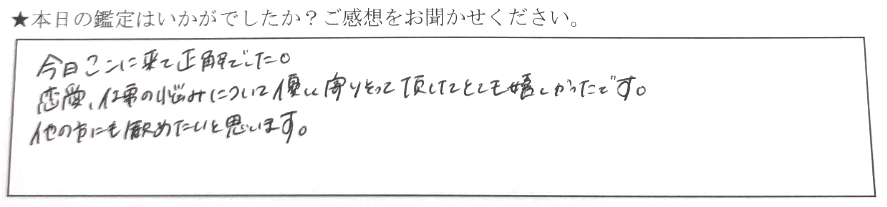 ★本日の鑑定はいかがでしたか？ご感想をお聞かせください。
今日ここに来て正解でした。
恋愛、仕事の悩みについて優しく寄りそって頂してとても嬉しかったです。
他の方にも勧めたいと思います。